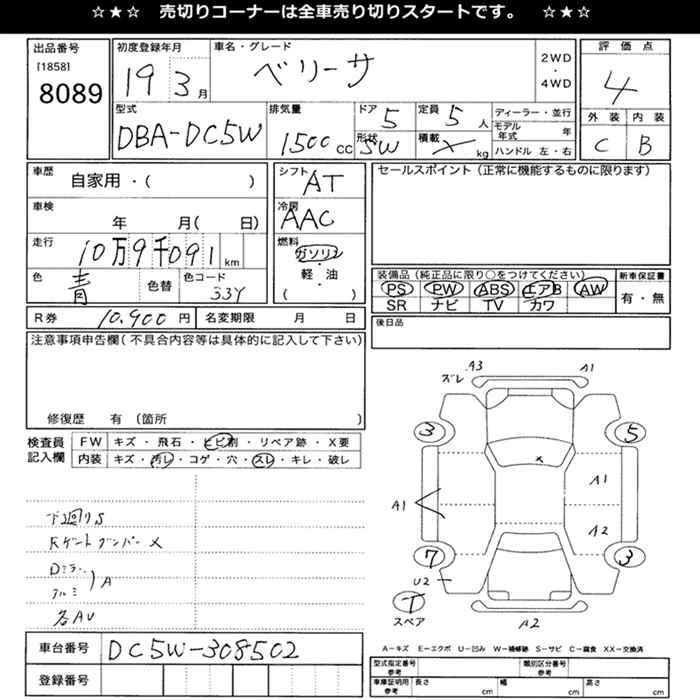 ☆★☆ 売切りコーナーは全車売り切りスタートです。 ☆★☆
出品番号
[1858]
8089
初度登録年月
19 3月
車名・グレード
ベリーサ
2WD
・
4WD
評価点
4
型式
DBA-DC5W
排気量
1500 CC
ドア
5
形状
5W
定員
5 人
積載
kg
ディーラー・並行
モデル年式 年
ハンドル 左・右
外装 内装
C B
車歴
自家用・( )
車検
年 月( 日)
走行
10万9千091 km
色
青
色替
色コード
33Y
シフト
AT
冷房
AAC
燃料
ガソリン
・
軽・油
・
( )
セールスポイント(正常に機能するものに限ります)
装備品(純正品に限り○をつけてください)
PS PW ABS エアB AW
SR ナビ TV カワ
新車保証書
有・無
R券 10,900 円
名変期限 月 日
後日品
注意事項申告欄(不具合内容等は具体的に記入して下さい)
修復歴 有(箇所 )
検査員記入欄
FW キズ・飛石・ヒビ割・リペア跡・X要
内装 キズ・汚レ・コゲ・穴・スレ・キレ・破レ
下廻りS
Rゲートダンパー×
Dミラー
アルミ
A
各AU
車台番号 DC5W-308502
登録番号
A3
ズレ
A1
3
5
×
A1
A1
A2
7
3
U2
T
スペア
A2
A-キズ E-エクボ U-凹み W-補修跡 S-サビ C-腐食 XX-交換済
型式指定番号
参考
類別区分番号
参考
車庫証明用
参考
長さ cm
幅 cm
高さ cm